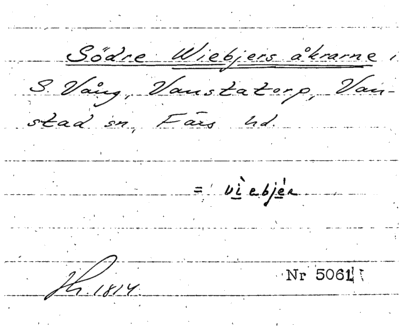 Södre Wiebjers åkrarne i
S. Vång, Vanstatorp, Van-
stad sn, Färs hd.
= viebjér
1814
Nr 5061